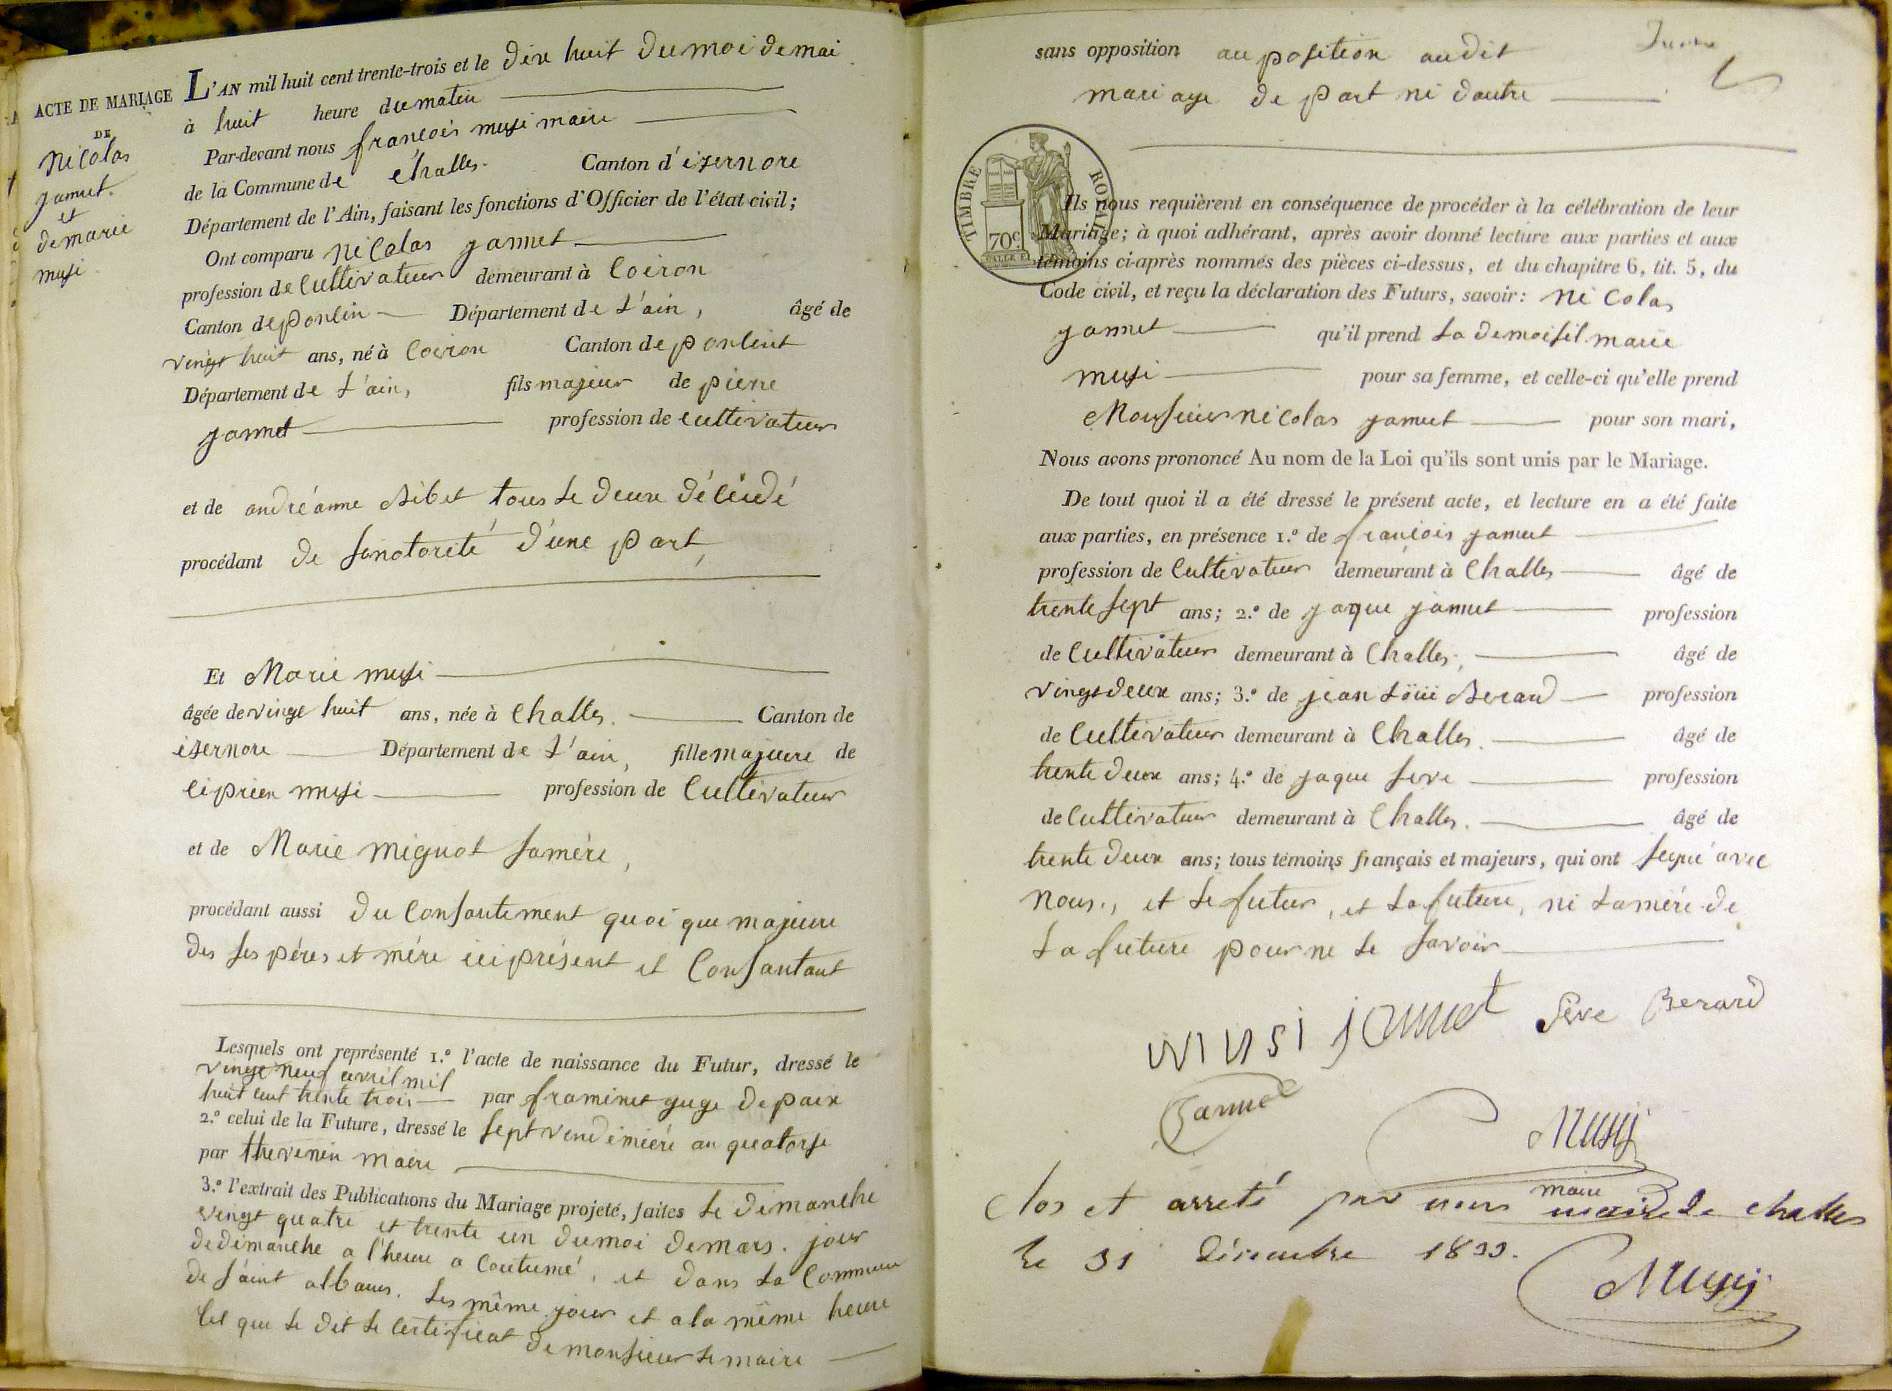 ACTE DE MARIAGE
DE
Nicolas
jannet
et
de marie
musi
L'AN mil huit cent trente-trois et le dixe huit du moi de mai
à huit heure du matin
Par-devant nous françois musi maire
de la Commune de Challes. Canton d'isernore
Département de l'Ain, faisant les fonctions d'Officier de l'état civil;
Ont comparu nicolas jannet
profession de Cultivateur demeurant à Coiron
Canton de poncin Département de L'ain, âgé de
vingt huit ans, né à Coiron Canton de poncint
Département de L'ain, fils majeur de piere
jannet profession de cultivateur
et de andréanne Bibet tous le deuxe décédé
procédant de sa notorieté d'une part,
Et Marie musi
âgée de vingt huit ans, née à Challes. Canton de
isernore Département de L'ain, fille majeure de
ciprien musi profession de Cultivateur
et de Marie mignot sa mére,
procédant aussi du Consantement quoi que majeure
des ses péres et mére ici présent et Consantant
Lesquels ont représenté 1.º l'acte de naissance du Futur, dressé le
vingt neuf avril mil
huit cent trente trois par frominet guge de paix
2.º celui de la Future, dressé le sept vendimiére an quatorse
par thevenin maire
3.º l'extrait des Publications du Mariage projeté, faites le dimanche
vingt quatre et trente un du moi de mars. jour
de dimanche a l'heure a Coutumé, et dans la Commune
de saint albans. les même jour et a la même heure
tel que le dit le certificat de monsieur le maire
sans opposition au position au dit
mariage de part ni dautre
TIMBRE ROYAL
70 c
Ils nous requièrent en conséquence de procéder à la célébration de leur
Mariage; à quoi adhérant, après avoir donné lecture aux parties et aux
témoins ci-après nommés des pièces ci-dessus, et du chapitre 6, tit. 5, du
Code civil, et reçu la déclaration des Futurs, savoir: Nicolas
jannet qu'il prend La demoisil marie
musi pour sa femme, et celle-ci qu'elle prend
Monsieur nicolas jannet pour son mari,
Nous avons prononcé Au nom de la Loi qu'ils sont unis par le Mariage.
De tout quoi il a été dressé le présent acte, et lecture en a été faite
aux parties, en présence 1.º de françois jannet
profession de Cultivateur demeurant à Challes âgé de
trente sept ans; 2.º de jaque jannet profession
de Cultivateur demeurant à Challes. âgé de
vingt deux ans; 3.º de jean Loüi Berard profession
de Cultivateur demeurant à Challes. âgé de
trente deux ans; 4.º de jaque seve profession
de Cultivateur demeurant à Challes. âgé de
trente deux ans; tous témoins français et majeurs, qui ont signé avec
nous., et le futur, et la future, ni La mére de
La future pour ne le savoir
MUSI jannet Seve Berard
Jannet
Musy
Clos et arreté par nous maire de challes
maire
Le 31 Décembre 1833.
Musy